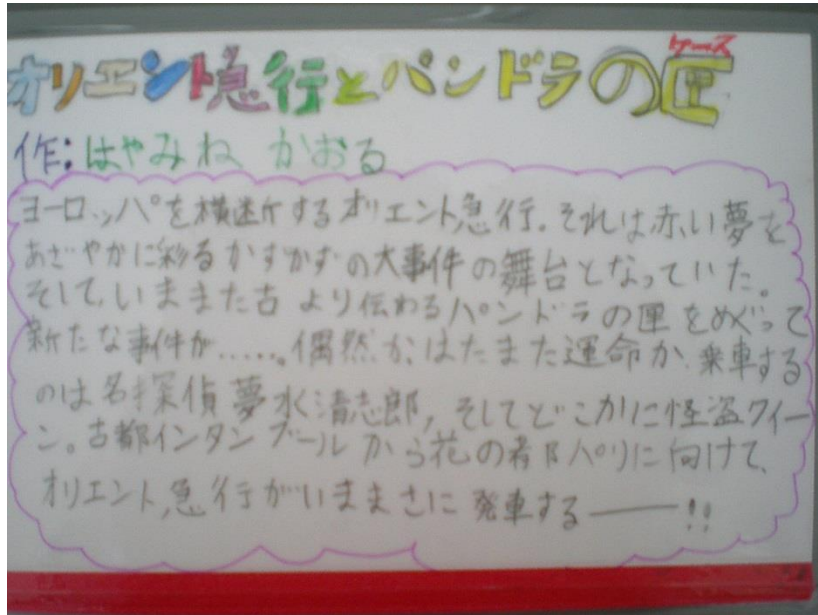 ケース
オリエント急行とパンドラの匣
作:はやみね かおる
ヨーロッパを横断するオリエント急行。それは赤い夢を
あざやかに彩るかずかずの大事件の舞台となっていた。
そして、いままた古より伝わるパンドラの匣をめぐって
新たな事件が……。偶然か、はたまた運命か、乗車する
のは名探偵夢水清志郎，そしてどこかに怪盗クイー
ン。古都インタンブールから花の都パリに向けて、
オリエント急行がいままさに発車する――!!